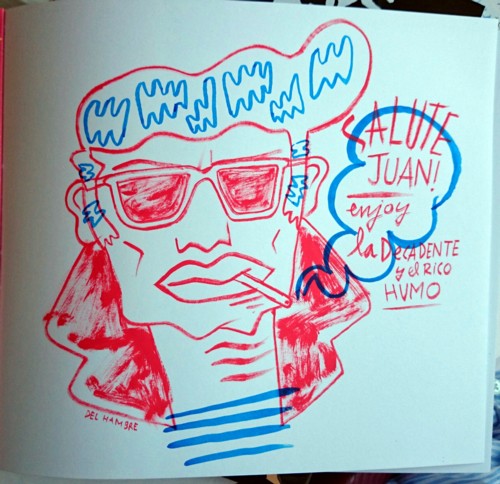 SALUTE
JUAN!
enjoy
la DeCADENTE
y el RICO
HUMO
DEL HAMBRE